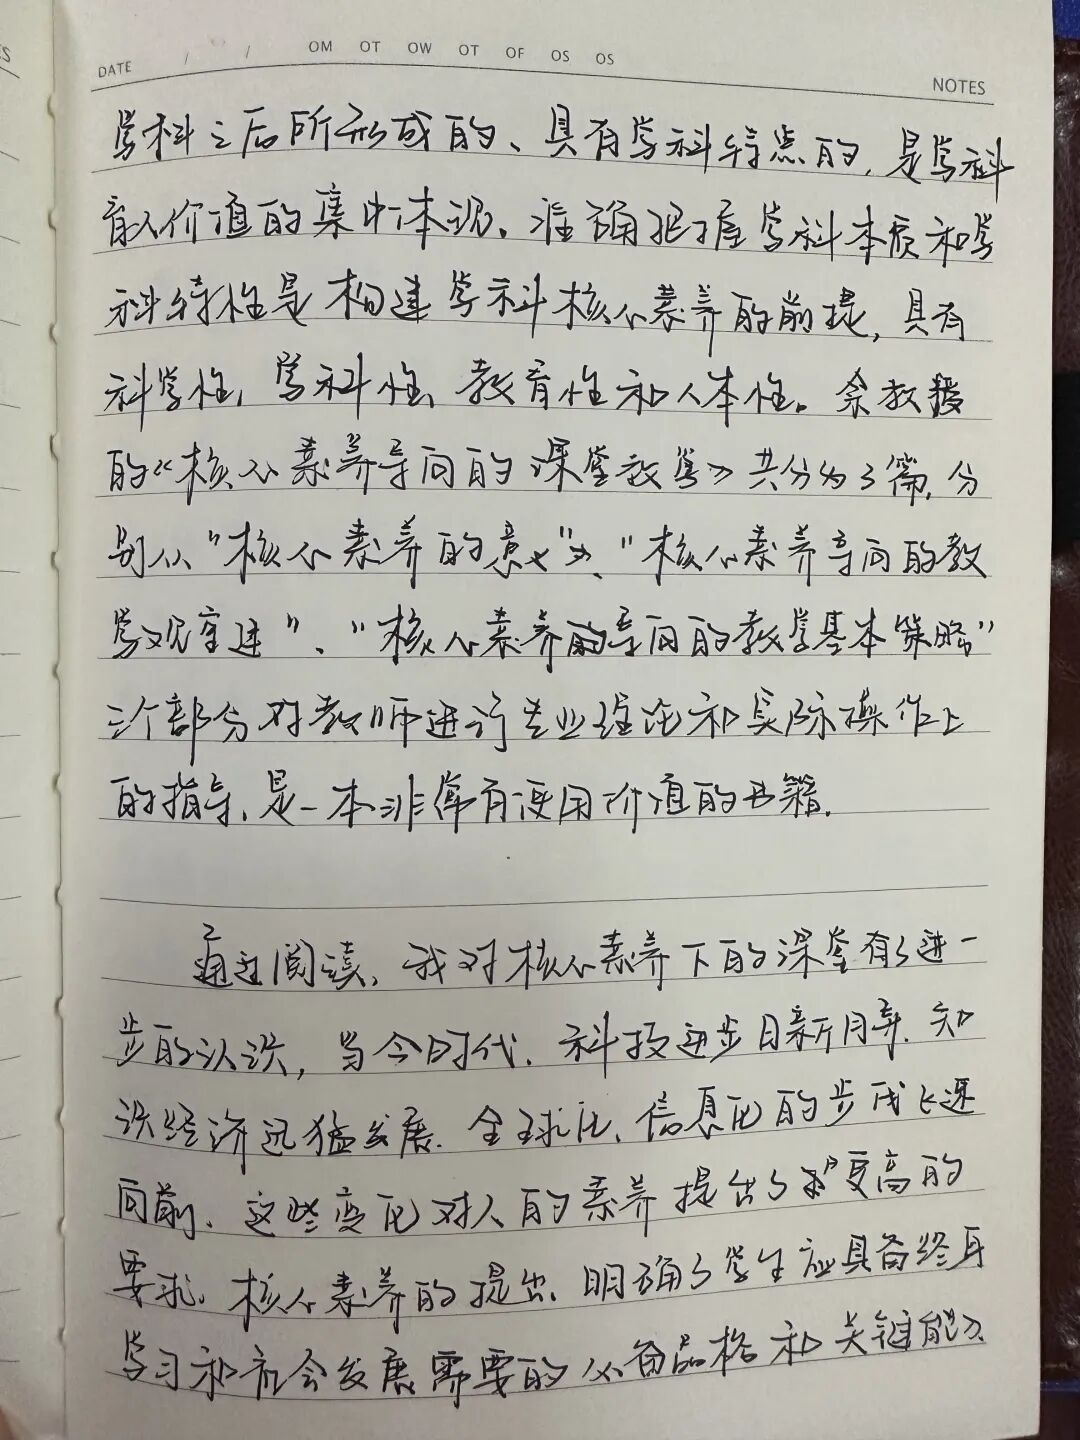 DATE / / OM OT OW OT OF OS OS
NOTES
学科之后所形成的、具有学科特点的,是学科
育人价值的集中体现。准确把握学科本质和学
科特性是构建学科核心素养的前提,具有
科学性,学科性、教育性和人本性。余教授
的《核心素养导向的课堂教学》共分为3篇,分
别从“核心素养的意义”、“核心素养导向的教
学观重建”、“核心素养导向的教学基本策略”
三个部分对教师进行专业理论和实际操作上
的指导,是一本非常有使用价值的书籍.
通过阅读,我对核心素养下的课堂有了进一
步的认识,当今时代.科技进步日新月异.知
识经济迅猛发展.全球化、信息化的步伐飞速
向前.这些变化对人的素养提出了更高的
要求.核心素养的提出、明确了学生应具备终身
学习和社会发展需要的必备品格和关键能力